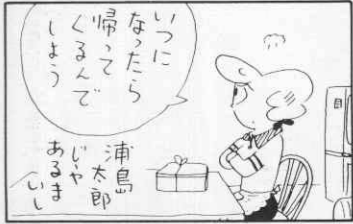 いつに
なったら
帰って
くるんで
しょう
浦島
太郎
じゃ
あるま
いし